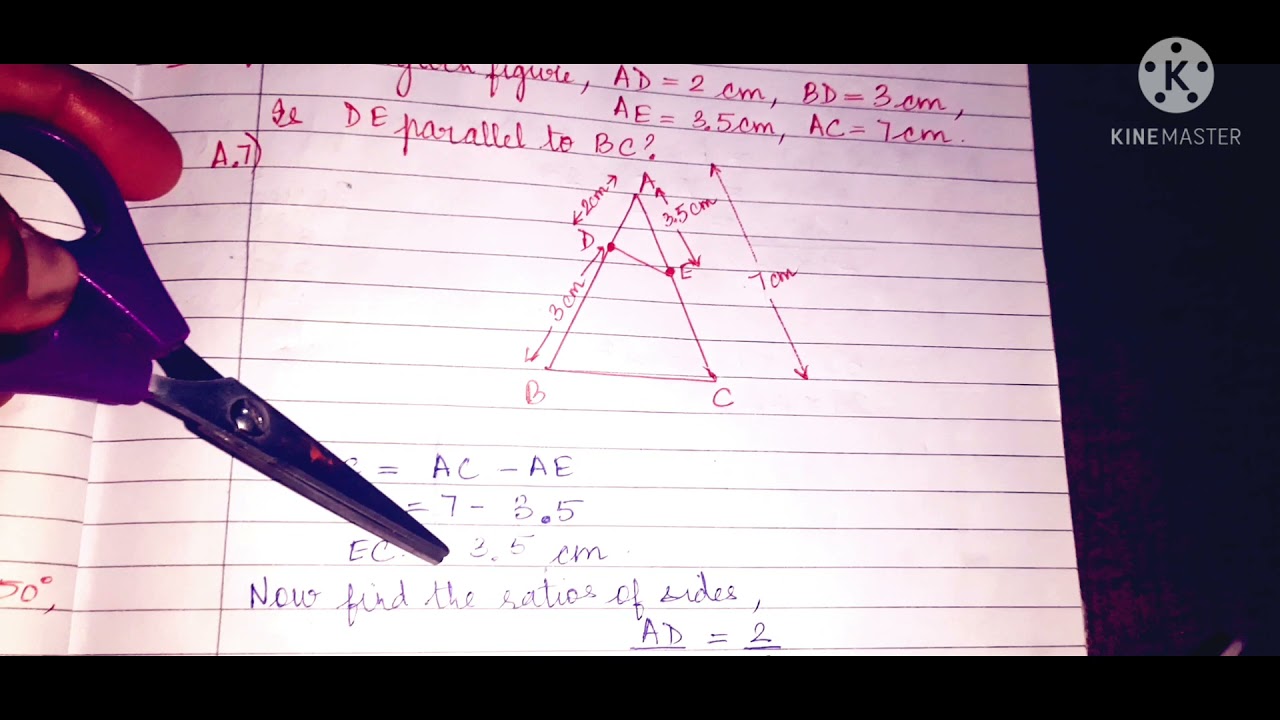 figure, AD = 2 cm, BD = 3 cm,
AE = 3.5cm, AC = 7cm.
Is DE parallel to BC?
A.7)
A
2cm
3.5cm
D
E
7cm
3cm
B
C
= AC - AE
= 7 - 3.5
EC 3.5 cm.
Now find the ratios of sides,
AD = 2
50°,
KINEMASTER